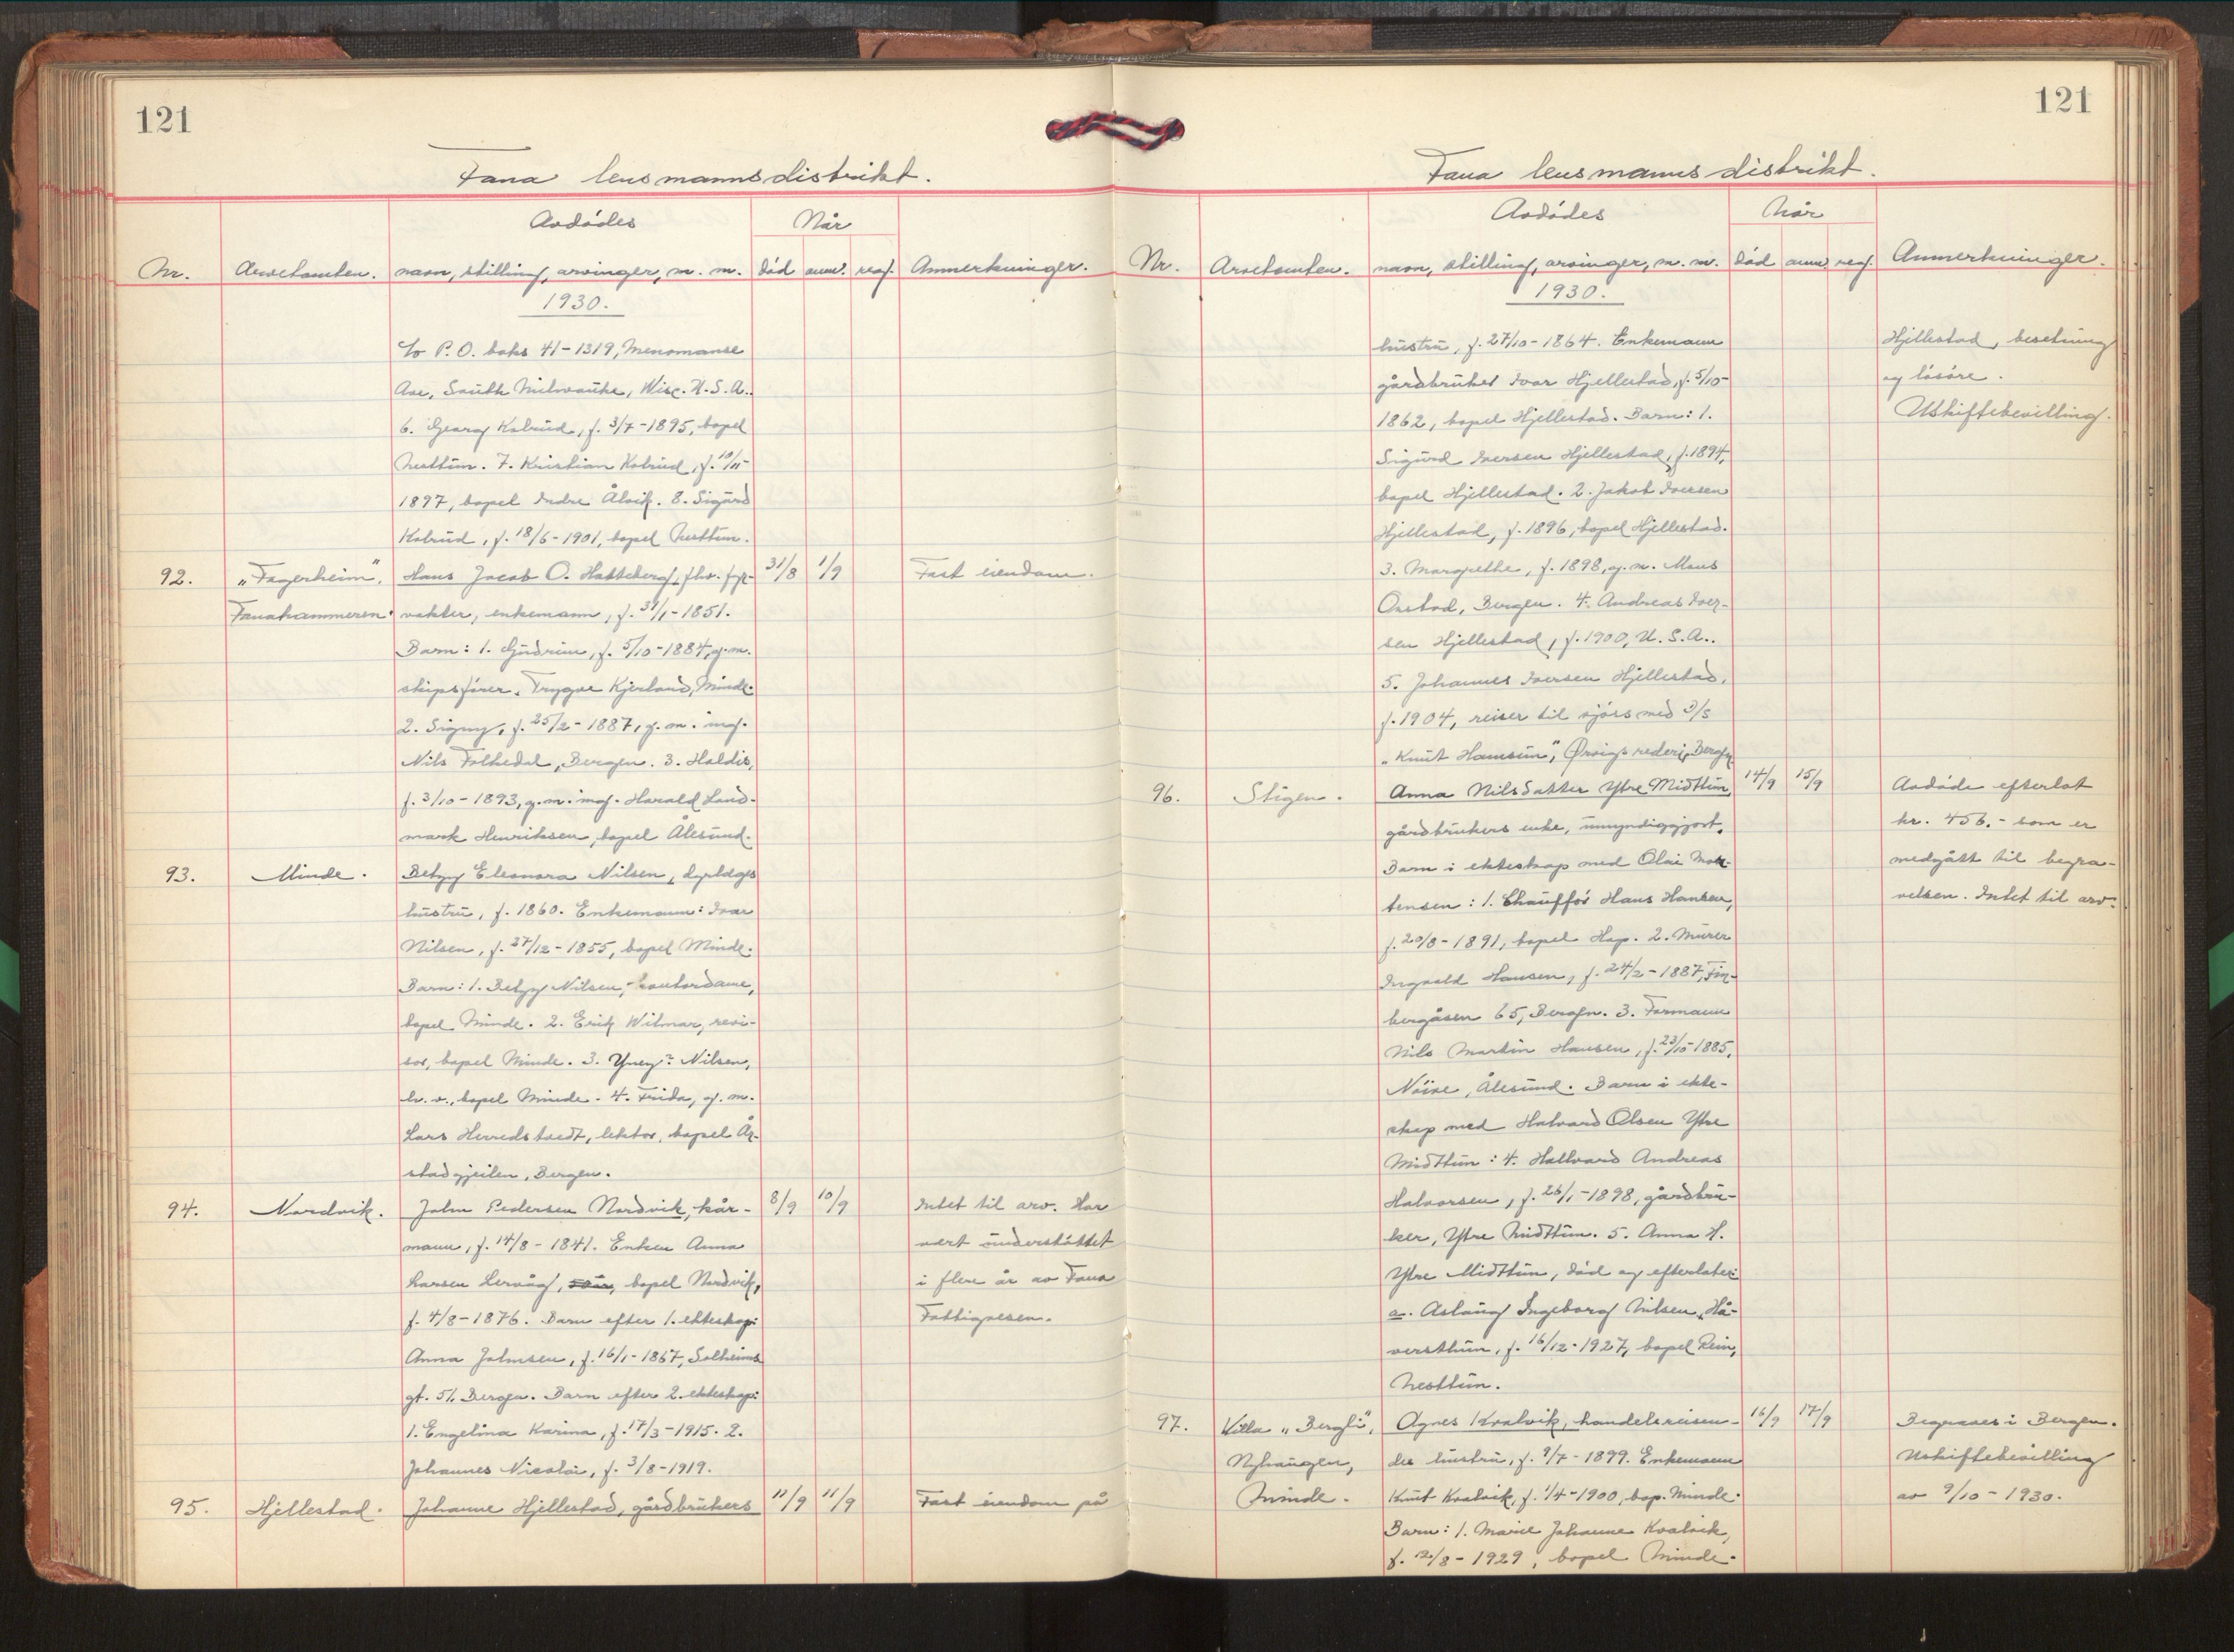 121
Fana lensmannsdistrikt.
Avdødes
Når
Nr. Arvetomten. navn, stilling, arvinger, m. m. død anm. reg. Anmerkninger.
1930.
c/o P. O. boks 41-1319, Menomanse
Ave, South Milwauke, Wisc. U. S. A..
6. Georg Kolrud, f. 3/7-1895, bopel
Nesttun. 7. Kristian Kolrud, f. 10/11-
1897, bopel Indre Ålvik. 8. Sigurd
Kolrud, f. 18/6-1901, bopel Nesttun.
92. "Fagerheim", Hans Jacob O. Hatteberg, fhv. fyr- 31/8 1/9 Fast eiendom.
Fanahammeren. vakter, enkemann, f. 31/1-1851.
Barn: 1. Gudrun, f. 5/10-1884, g. m.
skipsfører Trygve Kjerland, Minde.
2. Signy, f. 25/2-1887, g. m. ing.
Nils Folkedal, Bergen. 3. Haldis,
f. 3/10-1893, g. m. ing. Harald Land-
mark Henriksen, bopel Ålesund.
93. Minde. Betzy Eleonora Nilsen,
hustru, f. 1860. Enkemann: Ivar
Nilsen, f. 27/12-1855, bopel Minde.
Barn: 1. Betzy Nilsen, kontordame,
bopel Minde. 2. Erik Wilmar, revi-
sor, bopel Minde. 3. Yney? Nilsen,
h. v., bopel Minde. 4. Frida, g. m.
Lars Herredstvedt, lektor, bopel År-
stadgjeilen, Bergen.
94. Nordvik. John Pedersen Nordvik, kår- 8/9 10/9 Intet til arv. Har
mann, f. 14/8-1841. Enken Anna vært understøttet
Larsen Lervåg, bopel Nordvik, i flere år av Fana
f. 4/8-1876. Barn efter 1. ekteskap: Fattigvesen.
Anna Johnsen, f. 16/1-1867, Solheims
gt. 51. Bergen. Barn efter 2. ekteskap:
1. Engelina Karina, f. 17/3-1915. 2.
Johannes Nicolai, f. 3/8-1919.
95. Hjellestad. Johanne Hjellestad, gårdbrukers 11/9 11/9 Fast eiendom på
121
Fana lensmannsdistrikt.
Avdødes
Når
Nr. Arvetomten. navn, stilling, arvinger, m. m. død anm. reg. Anmerkninger.
1930.
hustru, f. 27/10-1864. Enkemann Hjellestad, besetning
gårdbruker Ivar Hjellestad, f. 5/10- og løsøre.
1862, bopel Hjellestad. Barn: 1. Uskiftebevilling.
Sigurd Iversen Hjellestad, f. 1894,
bopel Hjellestad. 2. Jakob Iversen
Hjellestad, f. 1896, bopel Hjellestad.
3. Margrethe, f. 1898, g. m. Mons
Onstad, Bergen. 4. Andreas Iver-
sen Hjellestad, f. 1900, U. S. A..
5. Johannes Iversen Hjellestad,
f. 1904, reiser til sjøss med D/S
"Knut Hamsun", Ørvigs rederi, Bergen
96. Stigen. Anna Nilsdatter Ytre Midttun, 14/9 15/9 Avdøde efterlot
gårdbrukers enke, umyndiggjort. kr. 456.- som er
Barn i ekteskap med Olai Mor- medgått til begra-
tensen: 1. Chauffør Hans Hansen, velsen. Intet til arv.
f. 20/8-1891, bopel Hop. 2. Murer
Ingvald Hansen, f. 24/2-1887, Fin-
bergåsen 65, Bergen. 3. Formann
Nils Martin Hansen, f. 23/10-1885,
Nöive, Ålesund. Barn i ekte-
skap med Halvard Olsen Ytre
Midttun: 4. Hallvard Andreas
Halvorsen, f. 26/1-1898, gårdbru-
ker, Ytre Midttun. 5. Anna H.
Ytre Midttun, død og efterlater:
a. Aslaug Ingeborg Nilsen, Hå-
versthun, f. 16/12-1927, bopel Rein,
Nesttun.
97. Villa "Bergli", Agnes Kvalvik, handelsreisen- 16/9 17/9 Begraves i Bergen.
Nyhaugen, des hustru, f. 9/7-1899. Enkemann Uskiftebevilling
Minde. Knut Kvalvik, f. 1/4-1900, bop. Minde. av 9/10-1930.
Barn: 1. Marie Johanne Kvalvik,
f. 12/8-1929, bopel Minde.